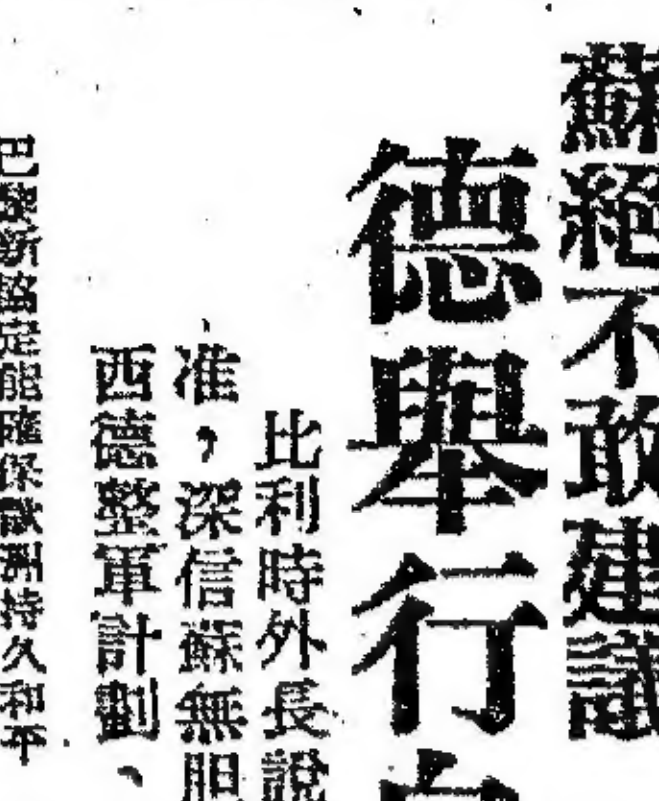 蘇絕不敢建議
德舉行自
比利時外長說
准，深信蘇無胆
西德整軍計劃、
巴黎新協定能確保歐洲持久和平